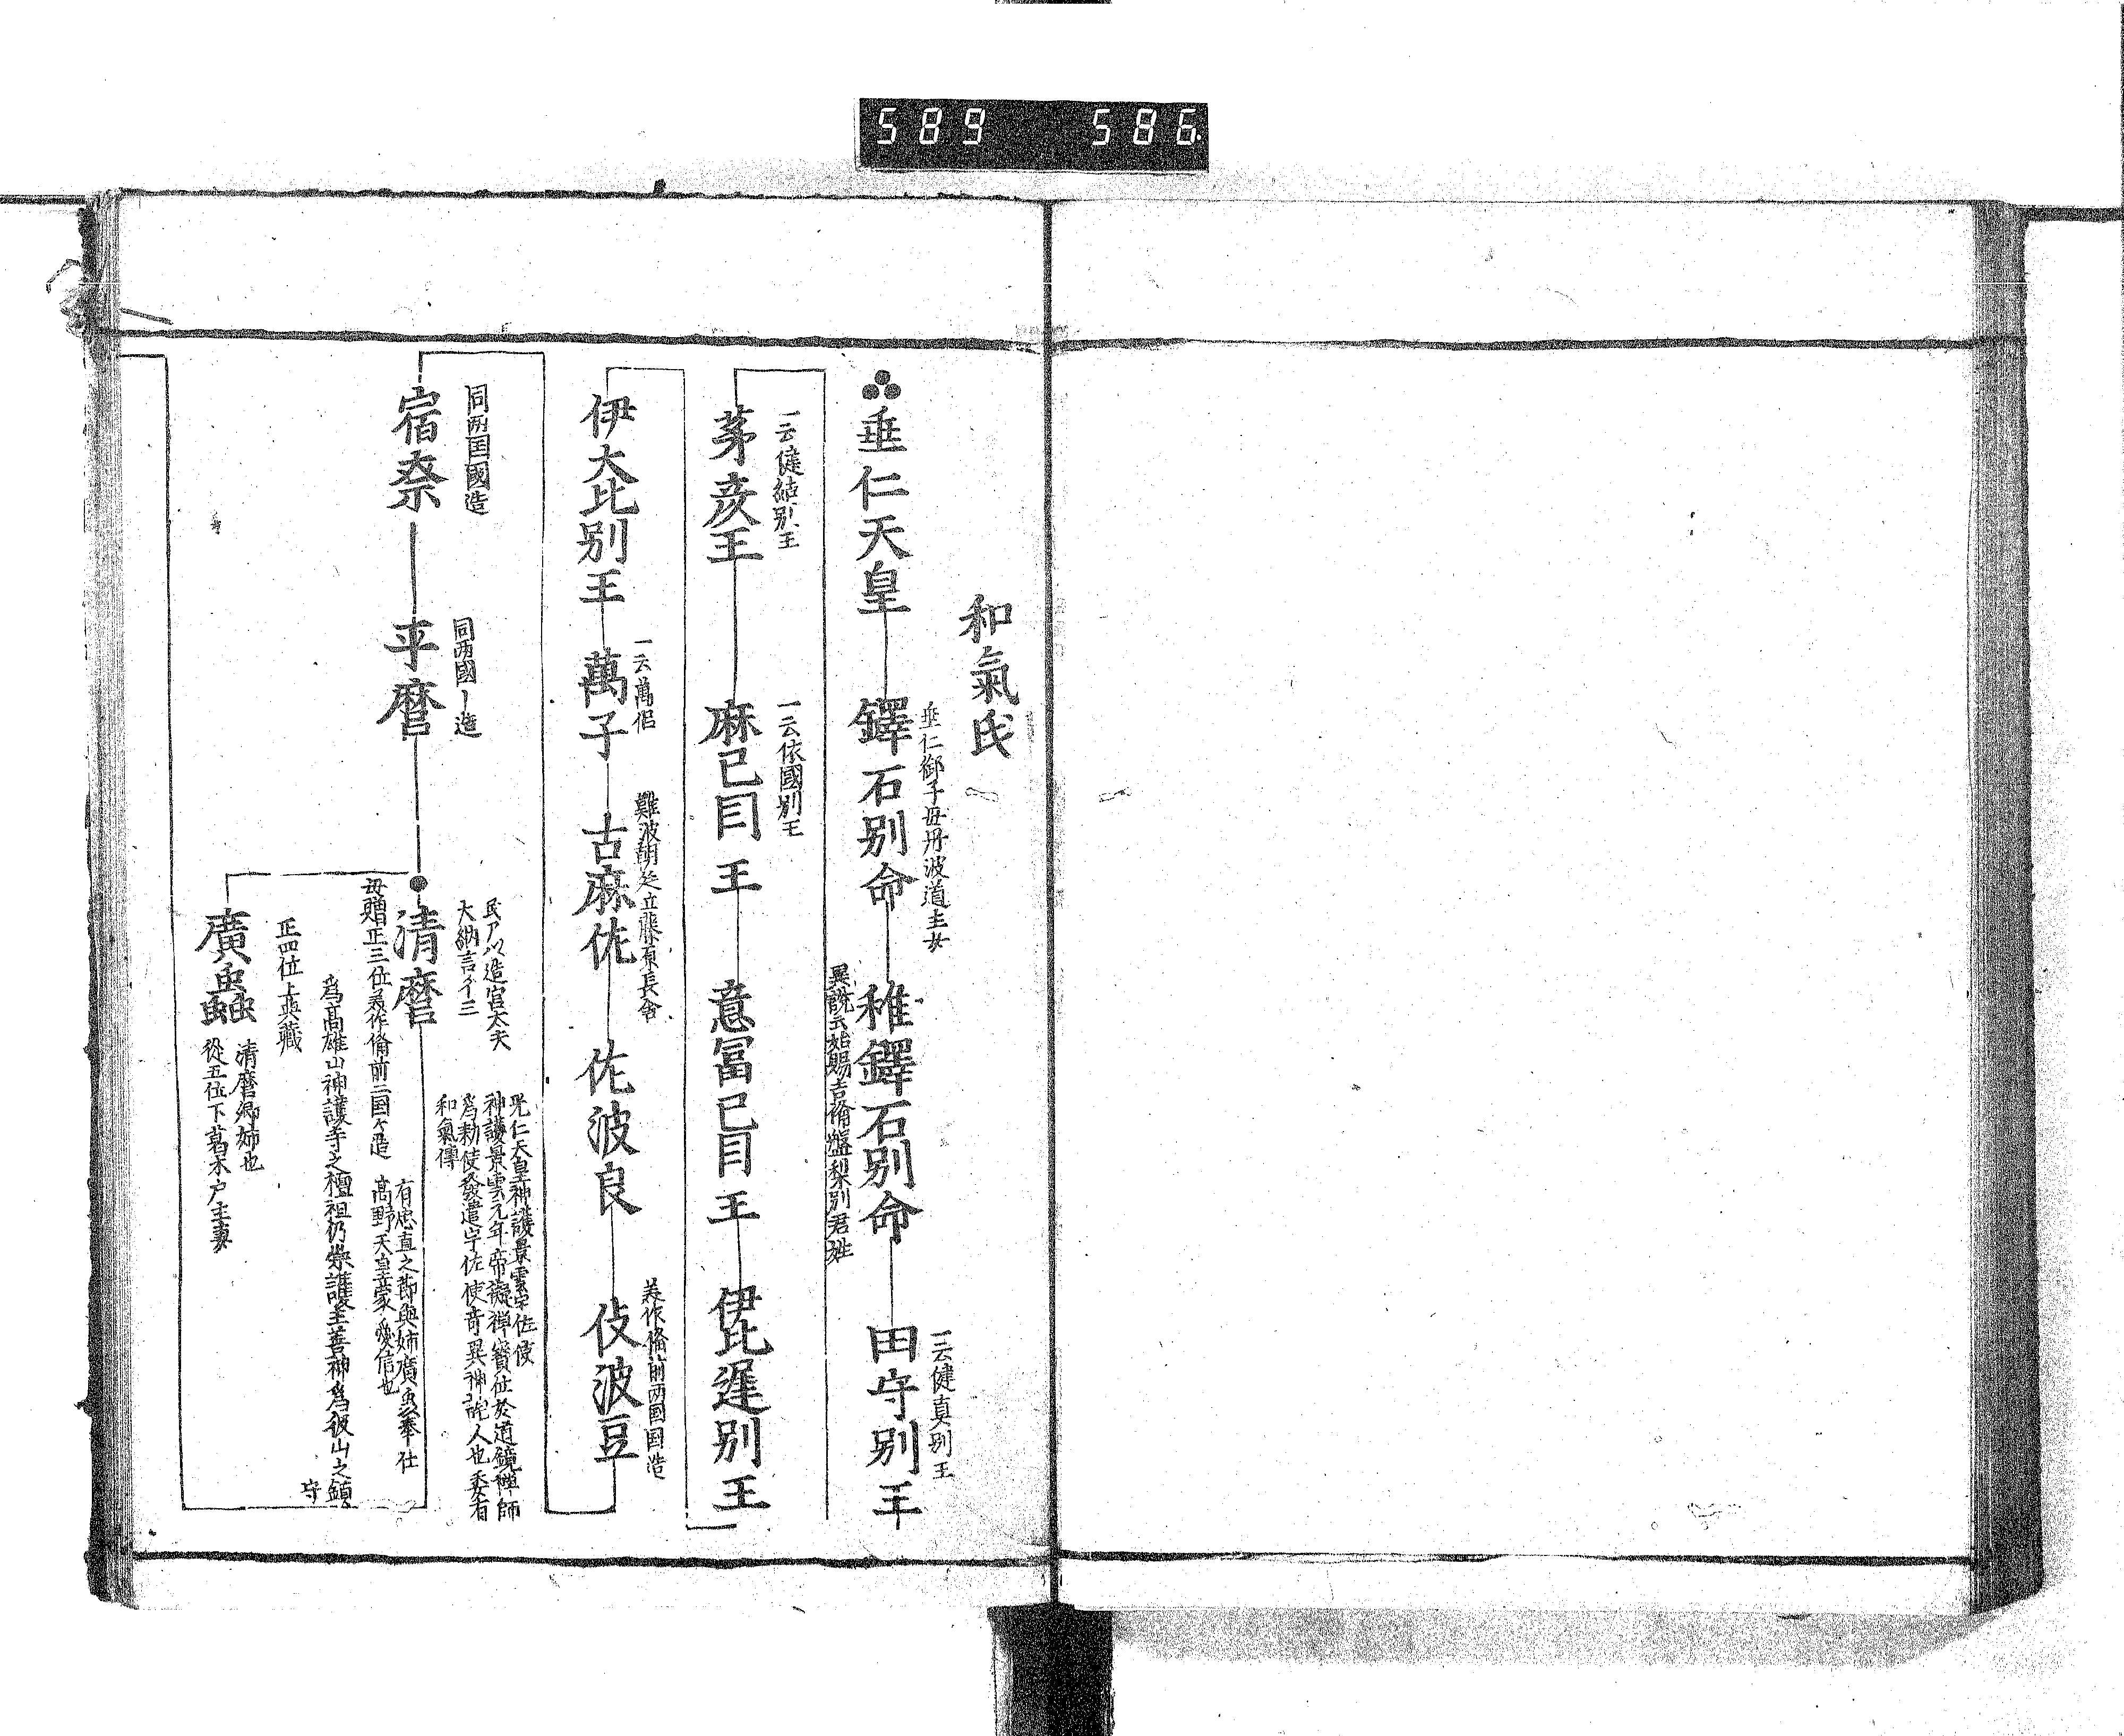 589 586
和氣氏
垂仁天皇
鐸石別命
垂仁御子母丹波道主女
稚鐸石別命
異説云始賜吉備磐梨別君姓
田守別王
一云健真別王
茅彦王
一云健結別王
麻己目王
一云依國別王
意冨己目王
伊比遅別王
伊大比別王
萬子
一云萬侶
古麻佐
難波朝廷立藤原長舎
佐波良
伎波豆
美作備前両国国造
宿奈
同两国國造
平麿
同两國ー造
清麿
民ア以造宮太夫
大納言イ三
光仁天皇神護景雲宇佐使
神護景雲元年帝擬禅寳位於道鏡禅師
為勅使發遣宇佐使奇異神託人也委有
和氣傳
母贈正三位美作備前二国々造
有忠直之節與姉廣虫奉仕
高野天皇蒙愛信也
為高雄山神護寺之檀祖仍崇護王善神為彼山之鎮
守
廣蟲
正四位上典藏
清麿卿姉也
從五位下葛木戸主妻